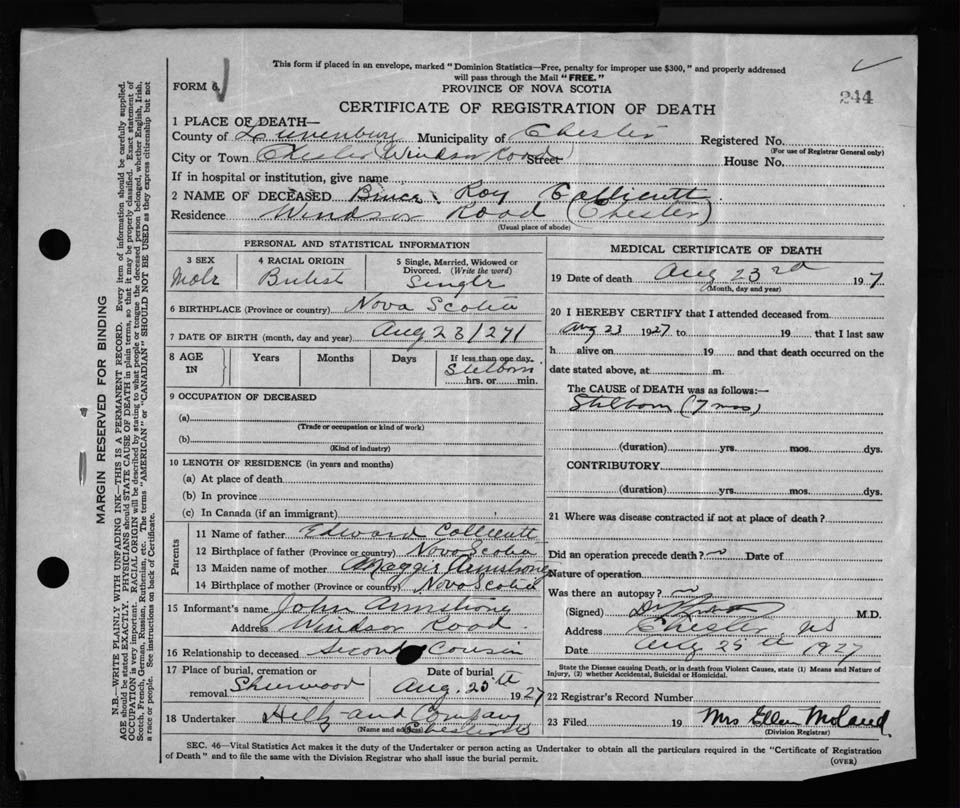 This form if placed in an envelope, marked "Dominion Statistics—Free, penalty for improper use $300," and properly addressed
will pass through the Mail "FREE."
FORM 6.
PROVINCE OF NOVA SCOTIA
244
CERTIFICATE OF REGISTRATION OF DEATH
1 PLACE OF DEATH—
County of Lunenburg Municipality of Chester Registered No.
(For use of Registrar General only)
City or Town Chester (Windsor Road) Street House No.
If in hospital or institution, give name
2 NAME OF DECEASED Bruce Roy Collicutt
Residence Windsor Road (Chester)
(Usual place of abode)
PERSONAL AND STATISTICAL INFORMATION
3 SEX
Male
4 RACIAL ORIGIN
British
5 Single, Married, Widowed or
Divorced. (Write the word)
Single
6 BIRTHPLACE (Province or country) Nova Scotia
7 DATE OF BIRTH (month, day and year) Aug 23/27
8 AGE IN
Years Months Days
If less than one day
Stilborn
hrs. or min.
9 OCCUPATION OF DECEASED
(a)
(Trade or occupation or kind of work)
(b)
(Kind of industry)
10 LENGTH OF RESIDENCE (in years and months)
(a) At place of death
(b) In province
(c) In Canada (if an immigrant)
Parents
11 Name of father Edward Collicutt
12 Birthplace of father (Province or country) Nova Scotia
13 Maiden name of mother Maggie Armstrong
14 Birthplace of mother (Province or country) Nova Scotia
15 Informant's name John Armstrong
Address Windsor Road
16 Relationship to deceased Second Cousin
17 Place of burial, cremation or
removal Sherwood
Date of burial
Aug. 25th 1927
18 Undertaker Hiltz and Company
(Name and address) Chester NS
MEDICAL CERTIFICATE OF DEATH
19 Date of death Aug 23rd 1927
(Month, day and year)
20 I HEREBY CERTIFY that I attended deceased from
Aug 23 1927 to 19 that I last saw
h alive on 19 and that death occurred on the
date stated above, at m.
The CAUSE of DEATH was as follows:—
Stilborn (7 mos)
(duration) yrs. mos. dys.
CONTRIBUTORY
(duration) yrs. mos. dys.
21 Where was disease contracted if not at place of death?
Did an operation precede death? no Date of
Nature of operation
Was there an autopsy? no
(Signed) M.D.
Address Chester, NS
Date Aug 25th 1927
State the Disease causing Death, or in death from Violent Causes, state (1) Means and Nature of
Injury, (2) whether Accidental, Suicidal or Homicidal.
22 Registrar's Record Number
23 Filed 19 Mrs Ellen
(Division Registrar)
SEC. 46—Vital Statistics Act makes it the duty of the Undertaker or person acting as Undertaker to obtain all the particulars required in the "Certificate of Registration
of Death" and to file the same with the Division Registrar who shall issue the burial permit.
(OVER)
MARGIN RESERVED FOR BINDING
N.B.—WRITE PLAINLY WITH UNFADING INK—THIS IS A PERMANENT RECORD. Every item of information should be carefully supplied.
AGE should be stated EXACTLY. PHYSICIANS should STATE CAUSE OF DEATH in plain terms, so that it may be properly classified. Exact statement of
OCCUPATION is very important. RACIAL ORIGIN will be described by stating to what people or tongue the deceased person belonged, whether English, Irish,
Scotch, French, German, Russian, Ruthenian, etc. The terms "AMERICAN" or "CANADIAN" SHOULD NOT BE USED as they express citizenship but not
a race or people. See instructions on back of Certificate.